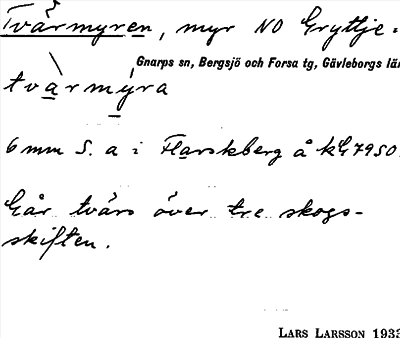 Tvärmyren, myr NO Gryttje=
Gnarps sn, Bergsjö och Forsa tg, Gävleborgs län
tvarmyra
6 mm S. a i Flarskberg å kG7950.
Går tvärs över tre skogs-
skiften.
LARS LARSSON 1933